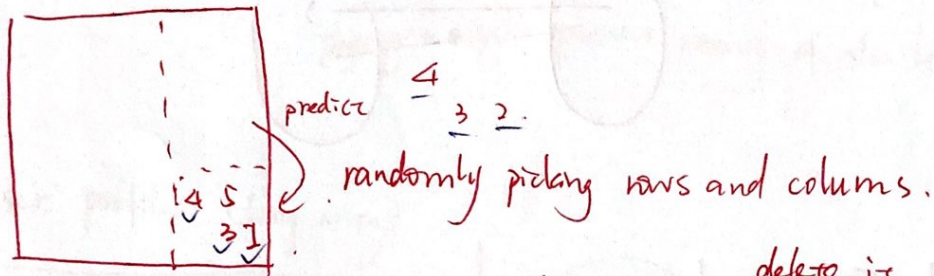 4
predict
3 2.
randomly picking rows and colums.
4 5
3 1
delete it